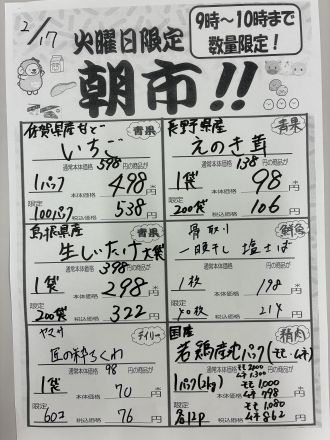 2/17
火曜日限定
9時～10時まで
数量限定！
朝市!!
佐賀県産甘で 青果
いちご
通常本体価格 598 円の商品が
1パック 本体価格 498 円
限定 100パック 税込価格 538 円
長野県産 青果
えのき茸
通常本体価格 138 円の商品が
1袋 本体価格 98 円
限定 200袋 税込価格 106 円
島根県産 青果
生しいたけ 大袋
通常本体価格 398 円の商品が
1袋 本体価格 298 円
限定 200袋 税込価格 322 円
骨取り 鮮魚
一晩干し 塩さば
1枚 本体価格 198 円
限定 40枚 税込価格 214 円
ヤマサ デイリー
匠の粋ちくわ
通常本体価格 98 円の商品が
1袋 本体価格 70 円
限定 60コ 税込価格 76 円
国産 精肉
若鶏産丸パック(モモ・ムネ)
通常本体価格 モモ 2,000 円の商品が
ムネ 1,300
1パック(2kg) 本体価格 モモ 1,000 円
ムネ 798
限定 各12P 税込価格 モモ 1,080 円
ムネ 862